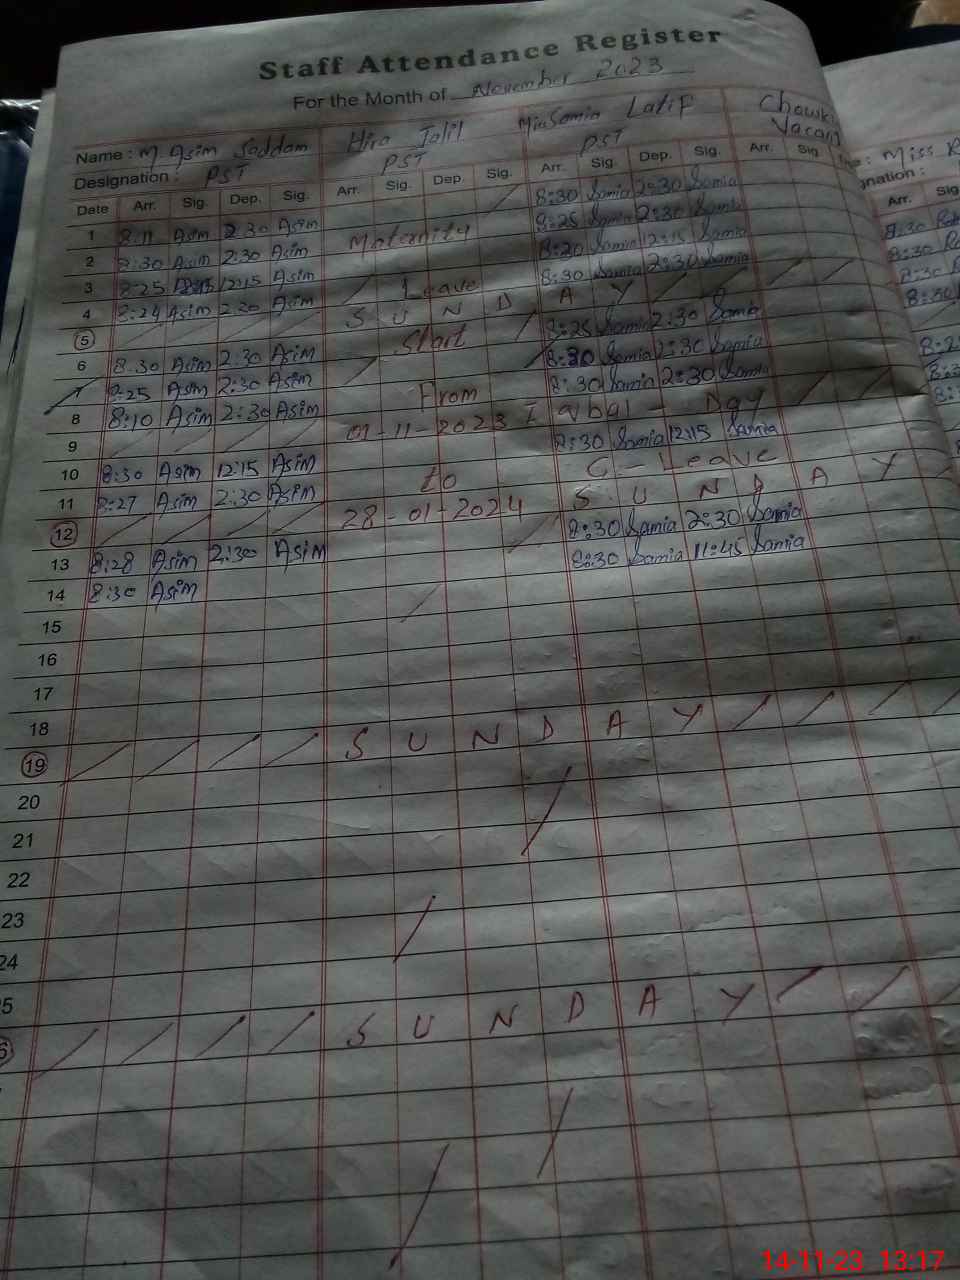 Staff Attendance Register
For the Month of November 2023
Name : M. Asim Saddam Hira Jalil Miss Samia Latif Chowki
Designation : PST PST PST Vacant
Date Arr. Sig. Dep. Sig. Arr. Sig. Dep. Sig. Arr. Sig. Dep. Sig. Arr. Sig.
1 8:11 Asim 2:30 Asim 8:30 Samia 2:30 Samia
2 8:30 Asim 2:30 Asim Maternity 8:25 Samia 2:30 Samia
3 8:25 Asim 12:15 Asim 8:20 Samia 12:15 Samia
4 8:24 Asim 2:30 Asim Leave 8:30 Samia 2:30 Samia
5 S U N D A Y
6 8:30 Asim 2:30 Asim Start 8:25 Samia 2:30 Samia
7 8:25 Asim 2:30 Asim 8:30 Samia 2:30 Samia
8 8:10 Asim 2:30 Asim From 8:30 Samia 2:30 Samia
9 01-11-2023 Iqbal - Day
10 8:30 Asim 12:15 Asim 8:30 Samia 12:15 Samia
11 8:27 Asim 2:30 Asim to C - Leave
12 28-01-2024 S U N D A Y
13 8:28 Asim 2:30 Asim 8:30 Samia 2:30 Samia
14 8:30 Asim 8:30 Samia 11:45 Samia
15
16
17
18
19 S U N D A Y
20
21
22
23
24
5
6 S U N D A Y
: Miss R
gnation :
Arr. Sig
8:30
8:30
8:30
8:30
14-11-23 13:17